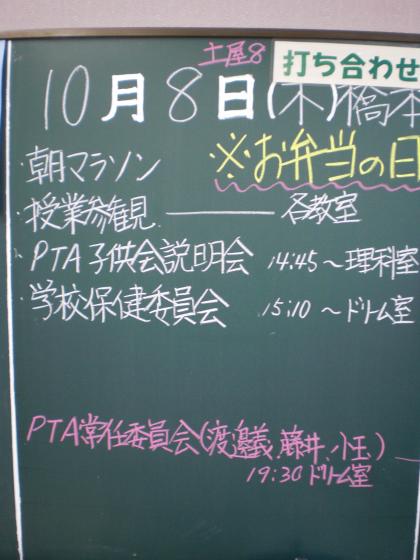 土屋8
打ち合わせ
10月8日(木)橋本
※お弁当の日
・朝マラソン
・授業参観 ―――― 各教室
・PTA子供会説明会 14:45～理科室
・学校保健委員会 15:10～ドリーム室
PTA常任委員会(渡邊義、藤井、小玉)
19:30ドリーム室